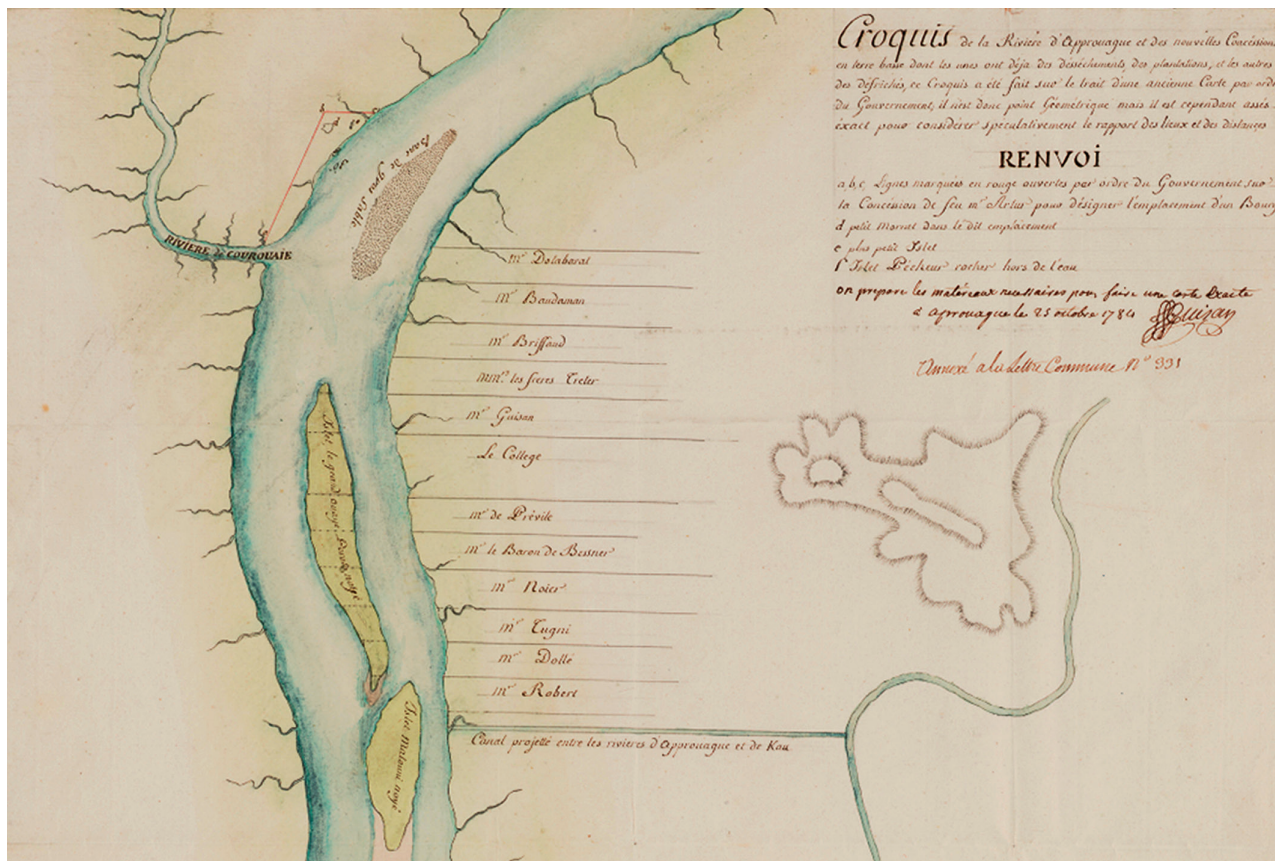 Croquis de la Rivière d'Approuague et des nouvelles Concéssions
en terre basse dont les unes ont déja des désséchements des plantations, et les autres
des défrichés, ce Croquis a été fait sur le trait d'une ancienne Carte par ordre
du Gouvernement, il n'est donc point Géométrique mais il est cependant assés
éxact pour considérer spéculativement le rapport des lieux et des distances
RENVOI
a, b, c, Lignes marquées en rouge ouvertes par ordre du Gouvernement sur
la Concéssion de feu mr Artur pour désigner l'emplacement d'un Bourg
d petit Mornet dans le dit emplacement
e plus petit Islet
f Islet Pêcheur rocher hors de l'eau
on prepare les matéreaux necessaires pour faire une carte Exacte
a aprouague le 25 octobre 1784 Guisan
Annexé a la Lettre Commune No 991
Banc de gros Sable
RIVIERE de COUROUAIE
mr Dolabarat
mr Baudaman
mr Briffaud
mrs les freres Treter
mr Guisan
Le College
mr de Prévile
mr le Baron de Bessner
mr Noier
mr Tugni
mr Dollé
mr Robert
Islet le grand
noyé
Islet Matouni noyé
Canal projetté entre les rivieres d'Approuague et de Kau